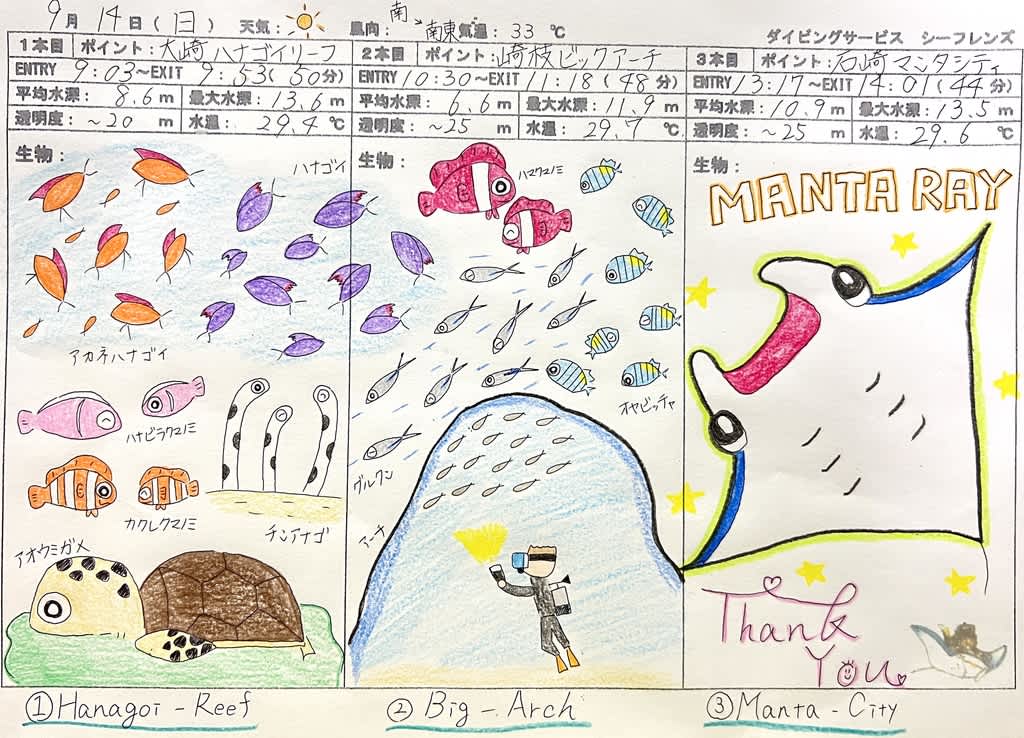 9月 14日(日) 天気: 風向: 南→南東 気温: 33 ℃
ダイビングサービス シーフレンズ
1本目 ポイント:大崎ハナゴイリーフ
ENTRY 9:03~EXIT 9:53(50分)
平均水深: 8.6m 最大水深: 13.6m
透明度: ~20 m 水温: 29.4℃
生物:
ハナゴイ
アカネハナゴイ
ハナビラクマノミ
カクレクマノミ
チンアナゴ
アオウミガメ
①Hanagoi - Reef
2本目 ポイント:崎枝ビックアーチ
ENTRY 10:30~EXIT 11:18(48分)
平均水深: 6.6m 最大水深: 11.9m
透明度: ~25 m 水温: 29.7℃
生物:
ハマクマノミ
オヤビッチャ
グルクン
アーチ
② Big - Arch
3本目 ポイント:石崎マンタシティ
ENTRY 13:17~EXIT 14:01(44分)
平均水深: 10.9m 最大水深: 13.5m
透明度: ~25 m 水温: 29.6℃
生物:
MANTA RAY
Thank
You
③Manta - City